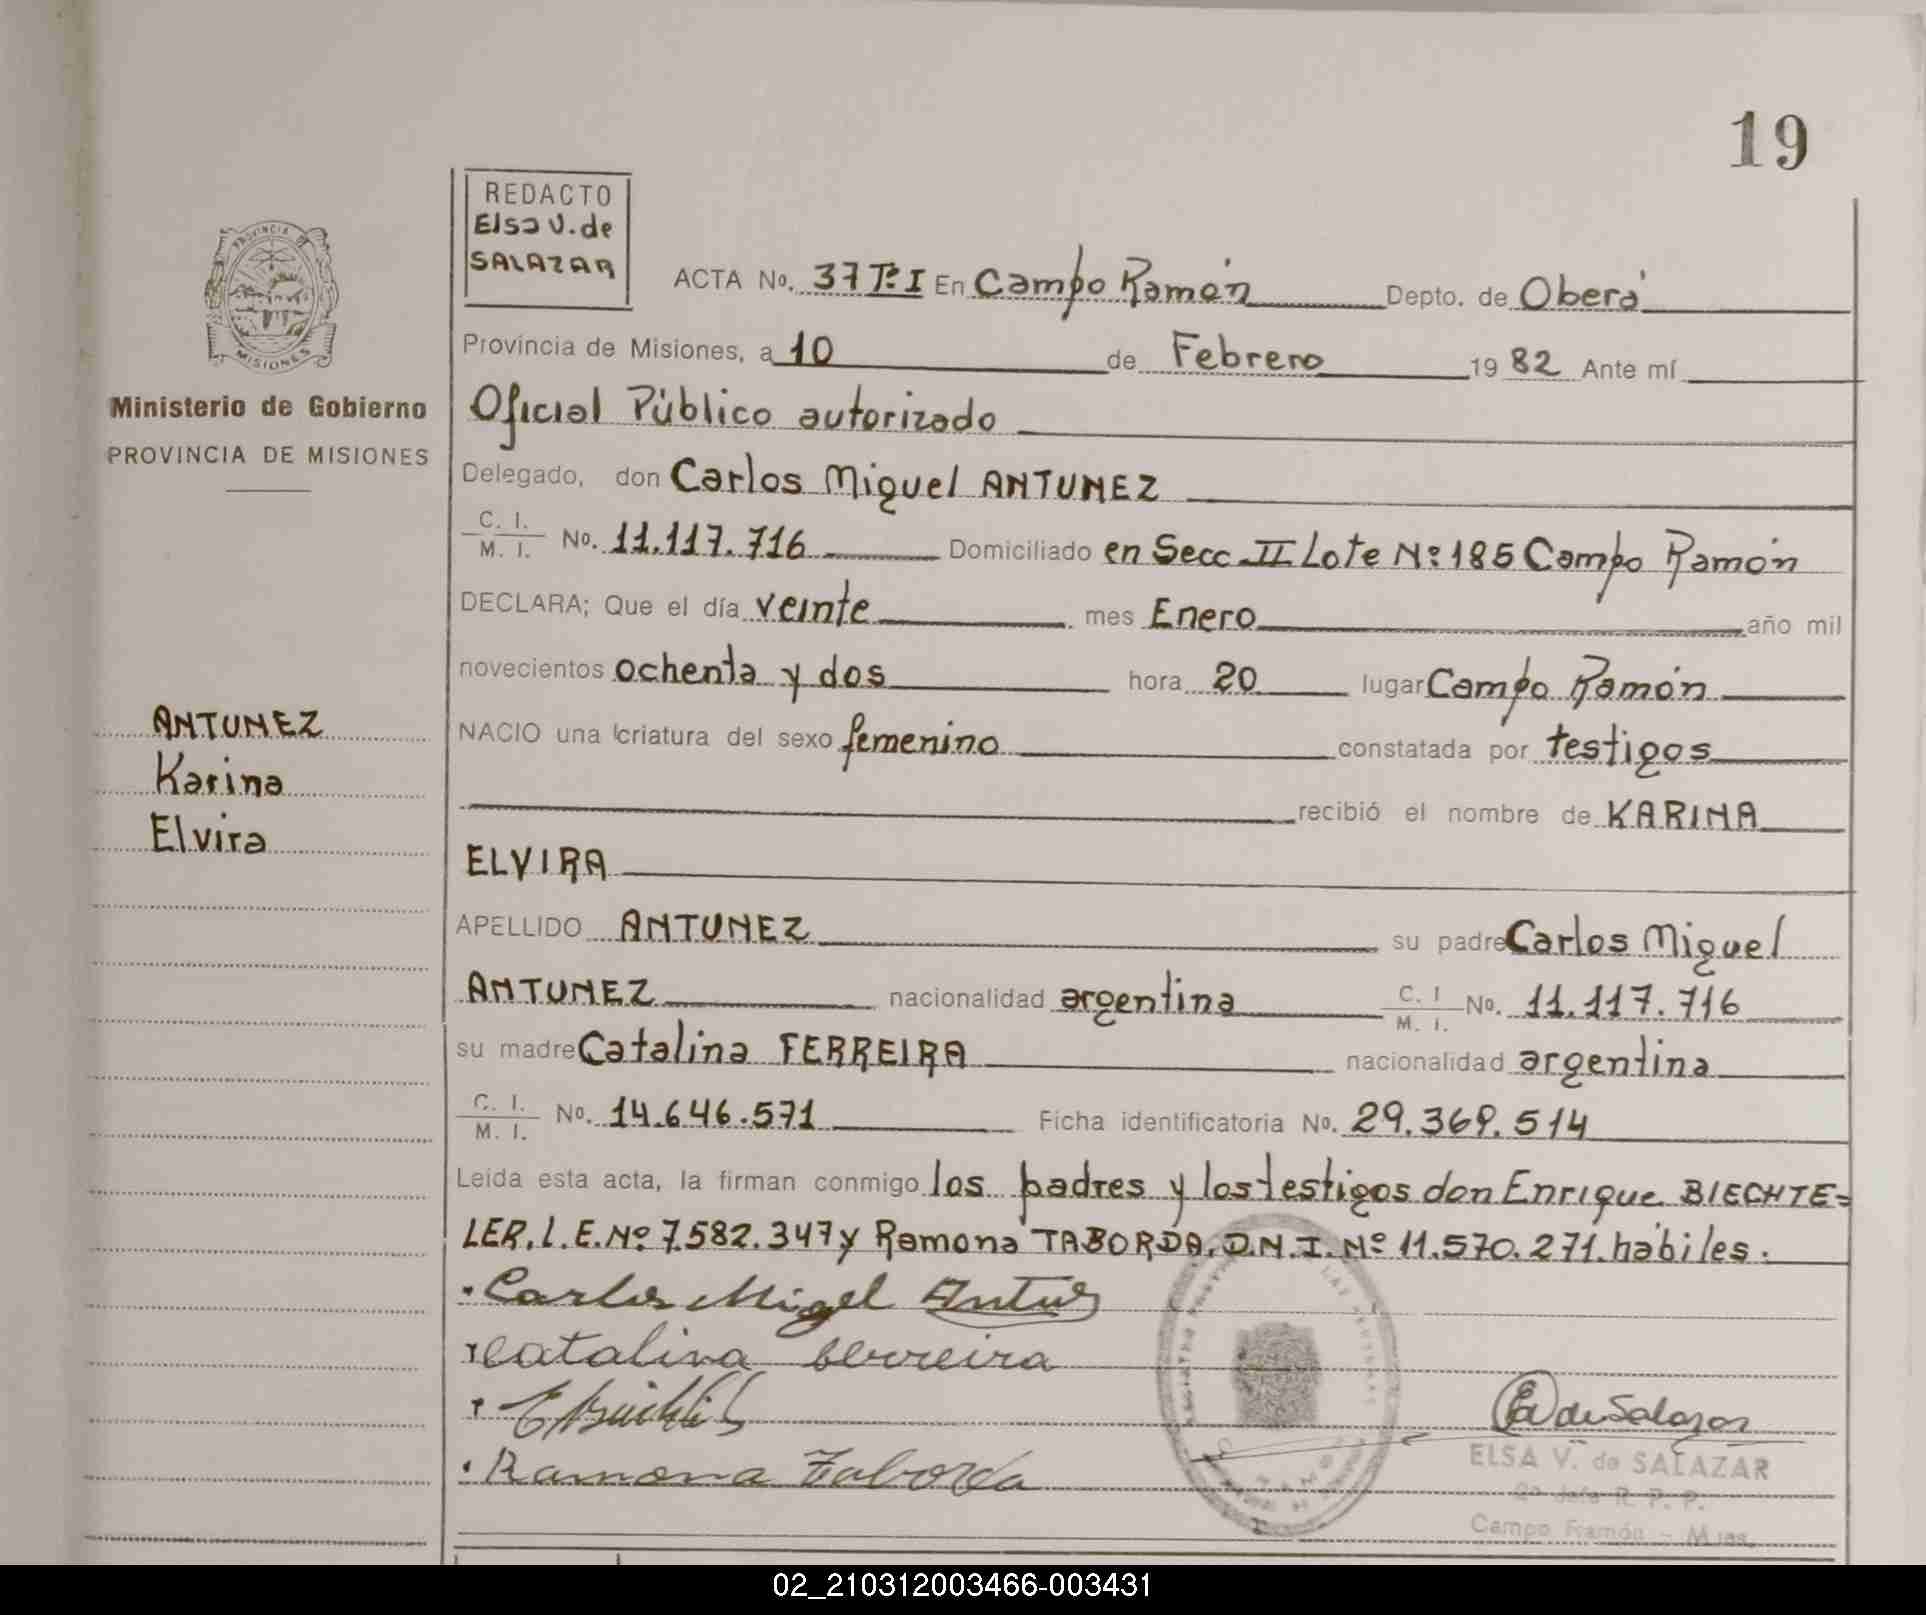 19
REDACTO
Elsa V. de
SALAZAR
PROVINCIA DE
MISIONES
Ministerio de Gobierno
PROVINCIA DE MISIONES
ANTUNEZ
Karina
Elvira
ACTA No. 37 Tº I En Campo Ramón Depto. de Oberá
Provincia de Misiones, a 10 de Febrero 19 82 Ante mí
Oficial Público autorizado
Delegado, don Carlos Miguel ANTUNEZ
C. I. / M. I. No. 11.117.716 Domiciliado en Secc II Lote Nº 185 Campo Ramón
DECLARA; Que el día veinte mes Enero año mil
novecientos ochenta y dos hora 20 lugar Campo Ramón
NACIO una criatura del sexo femenino constatada por testigos
recibió el nombre de KARINA
ELVIRA
APELLIDO ANTUNEZ su padre Carlos Miguel
ANTUNEZ nacionalidad argentina C. I / M. I. No. 11.117.716
su madre Catalina FERREIRA nacionalidad argentina
C. I. / M. I. No. 14.646.571 Ficha identificatoria No. 29.369.514
Leída esta acta, la firman conmigo los padres y los testigos don Enrique BIECHTE=
LER, L.E.Nº 7.582.347 y Ramona TABORDA, D.N.I. Nº 11.570.271. hábiles.
Carlos Migel Antu
Catalina ferreira
Ramona Taborda
de Salazar
ELSA V. de SALAZAR
R. P. P.
Campo Ramón - Mnes.
02_210312003466-003431